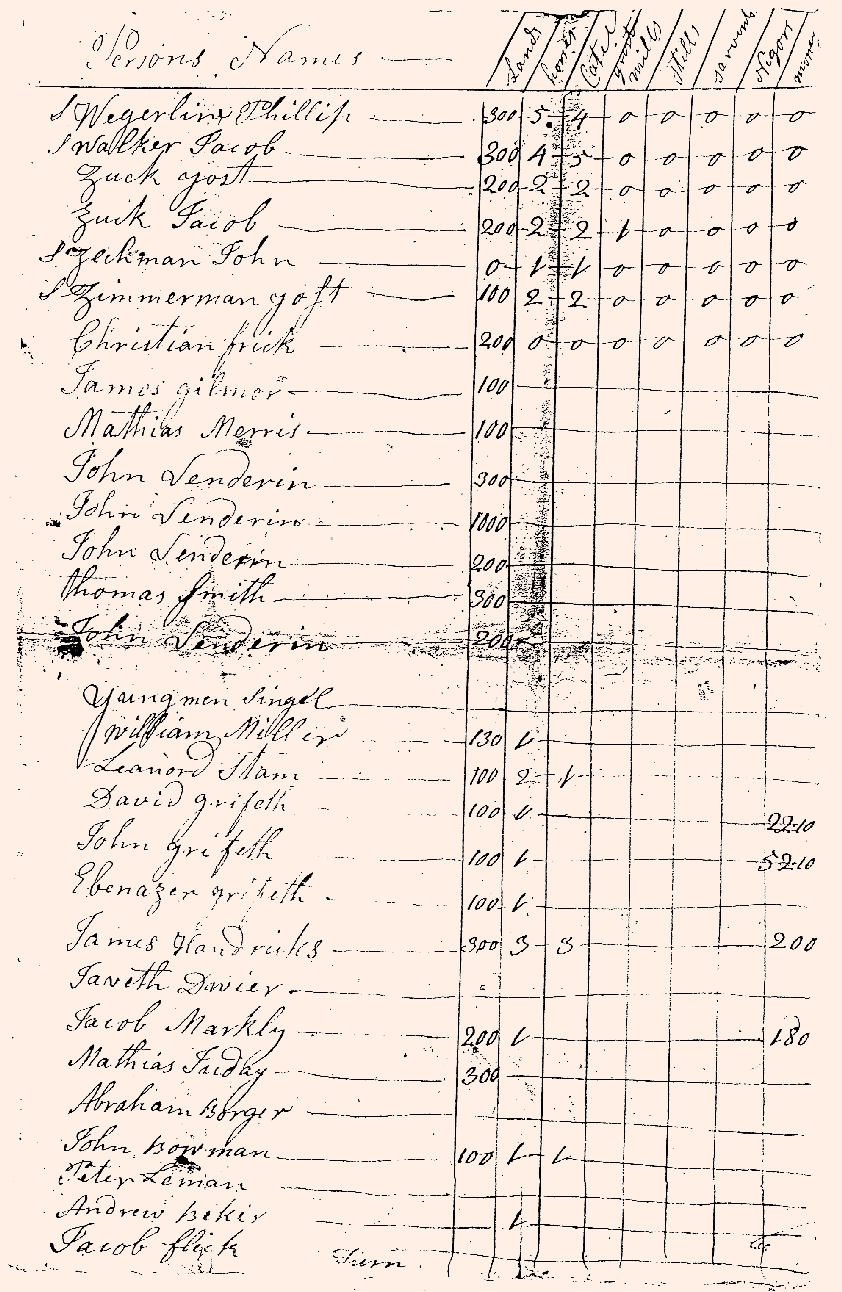 Persons Names Lands horses Catel grist mills Stills sarvents Nigors money
S Wegerline Phillip 300 5 4 0 0 0 0 0
S Walker Jacob 300 4 5 0 0 0 0 0
Zuck yost 200 2 2 0 0 0 0 0
Zuck Jacob 200 2 2 1 0 0 0 0
S Zeckman John 0 1 1 0 0 0 0 0
S Zimmerman yost 100 2 2 0 0 0 0 0
Christian frick 200 0 0 0 0 0 0 0
James gilmor 100
Mathias Merris 100
John Senderin 300
John Senderin 1000
John Senderin 200
thomas Smith 300
John Senderin 200
Yungmen Singel
William Miller 130 1
Leanord Stam 100 2 1
David grifeth 100 1 22-10
John grifeth 100 1 52-10
Ebenazer grifeth 100 1
James Handricks 300 3 3 200
Javeth Davier
Jacob Markly 200 1 180
Mathias Juday 300
Abraham Borger
John Bowman 100 1 1
Peter Leman
Andrew Bekir 1
Jacob flick
Sum